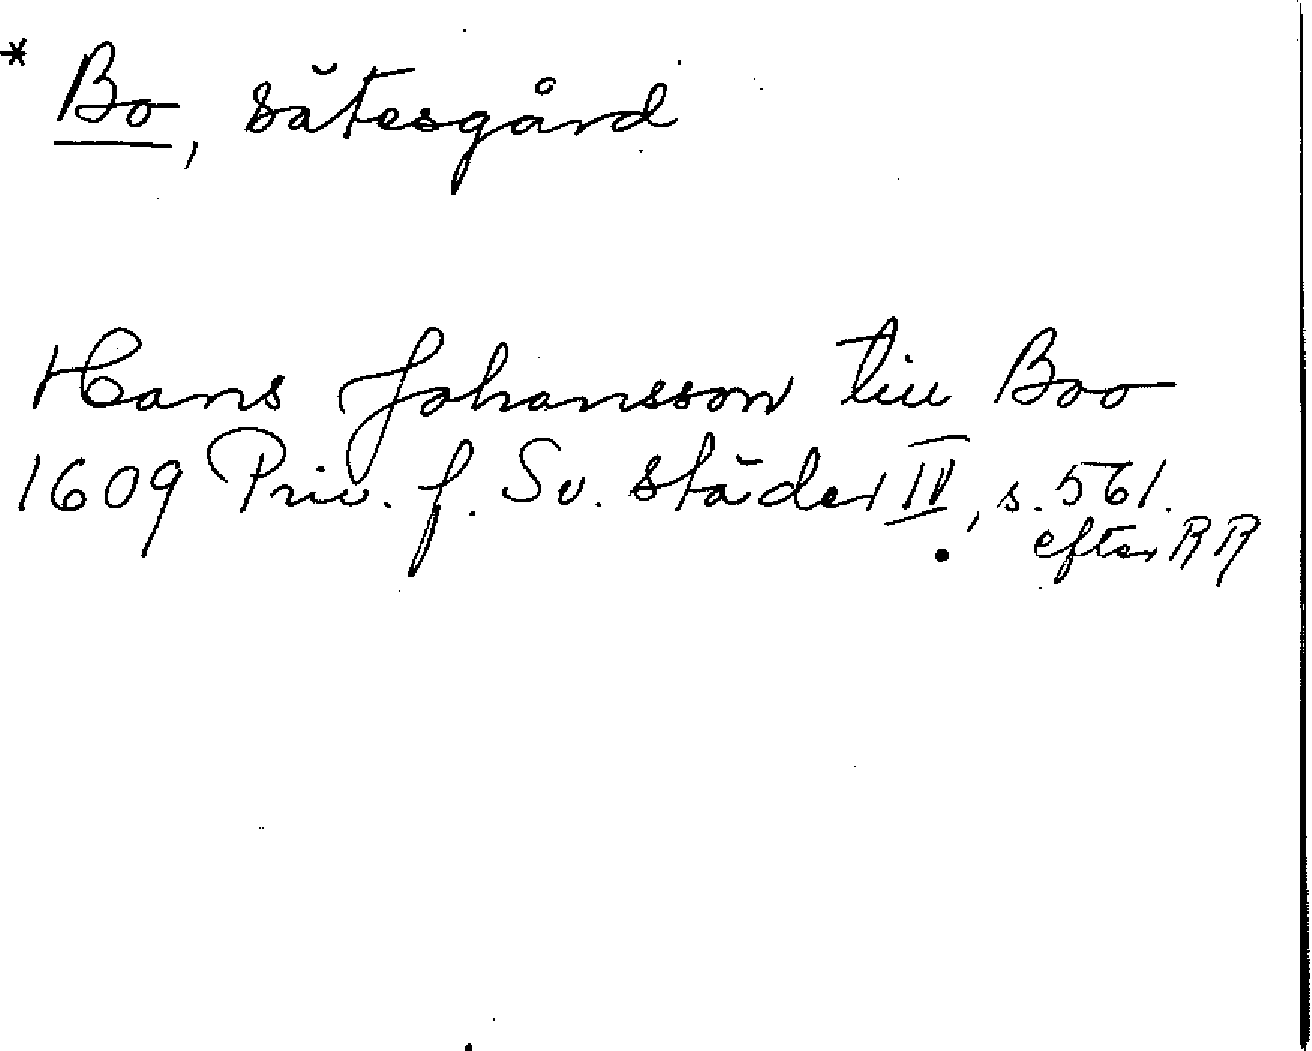 * Bo, sätesgård
Hans Johansson till Boo
1609 Priv. f. Sv. städer IV, s. 561.
efter RR